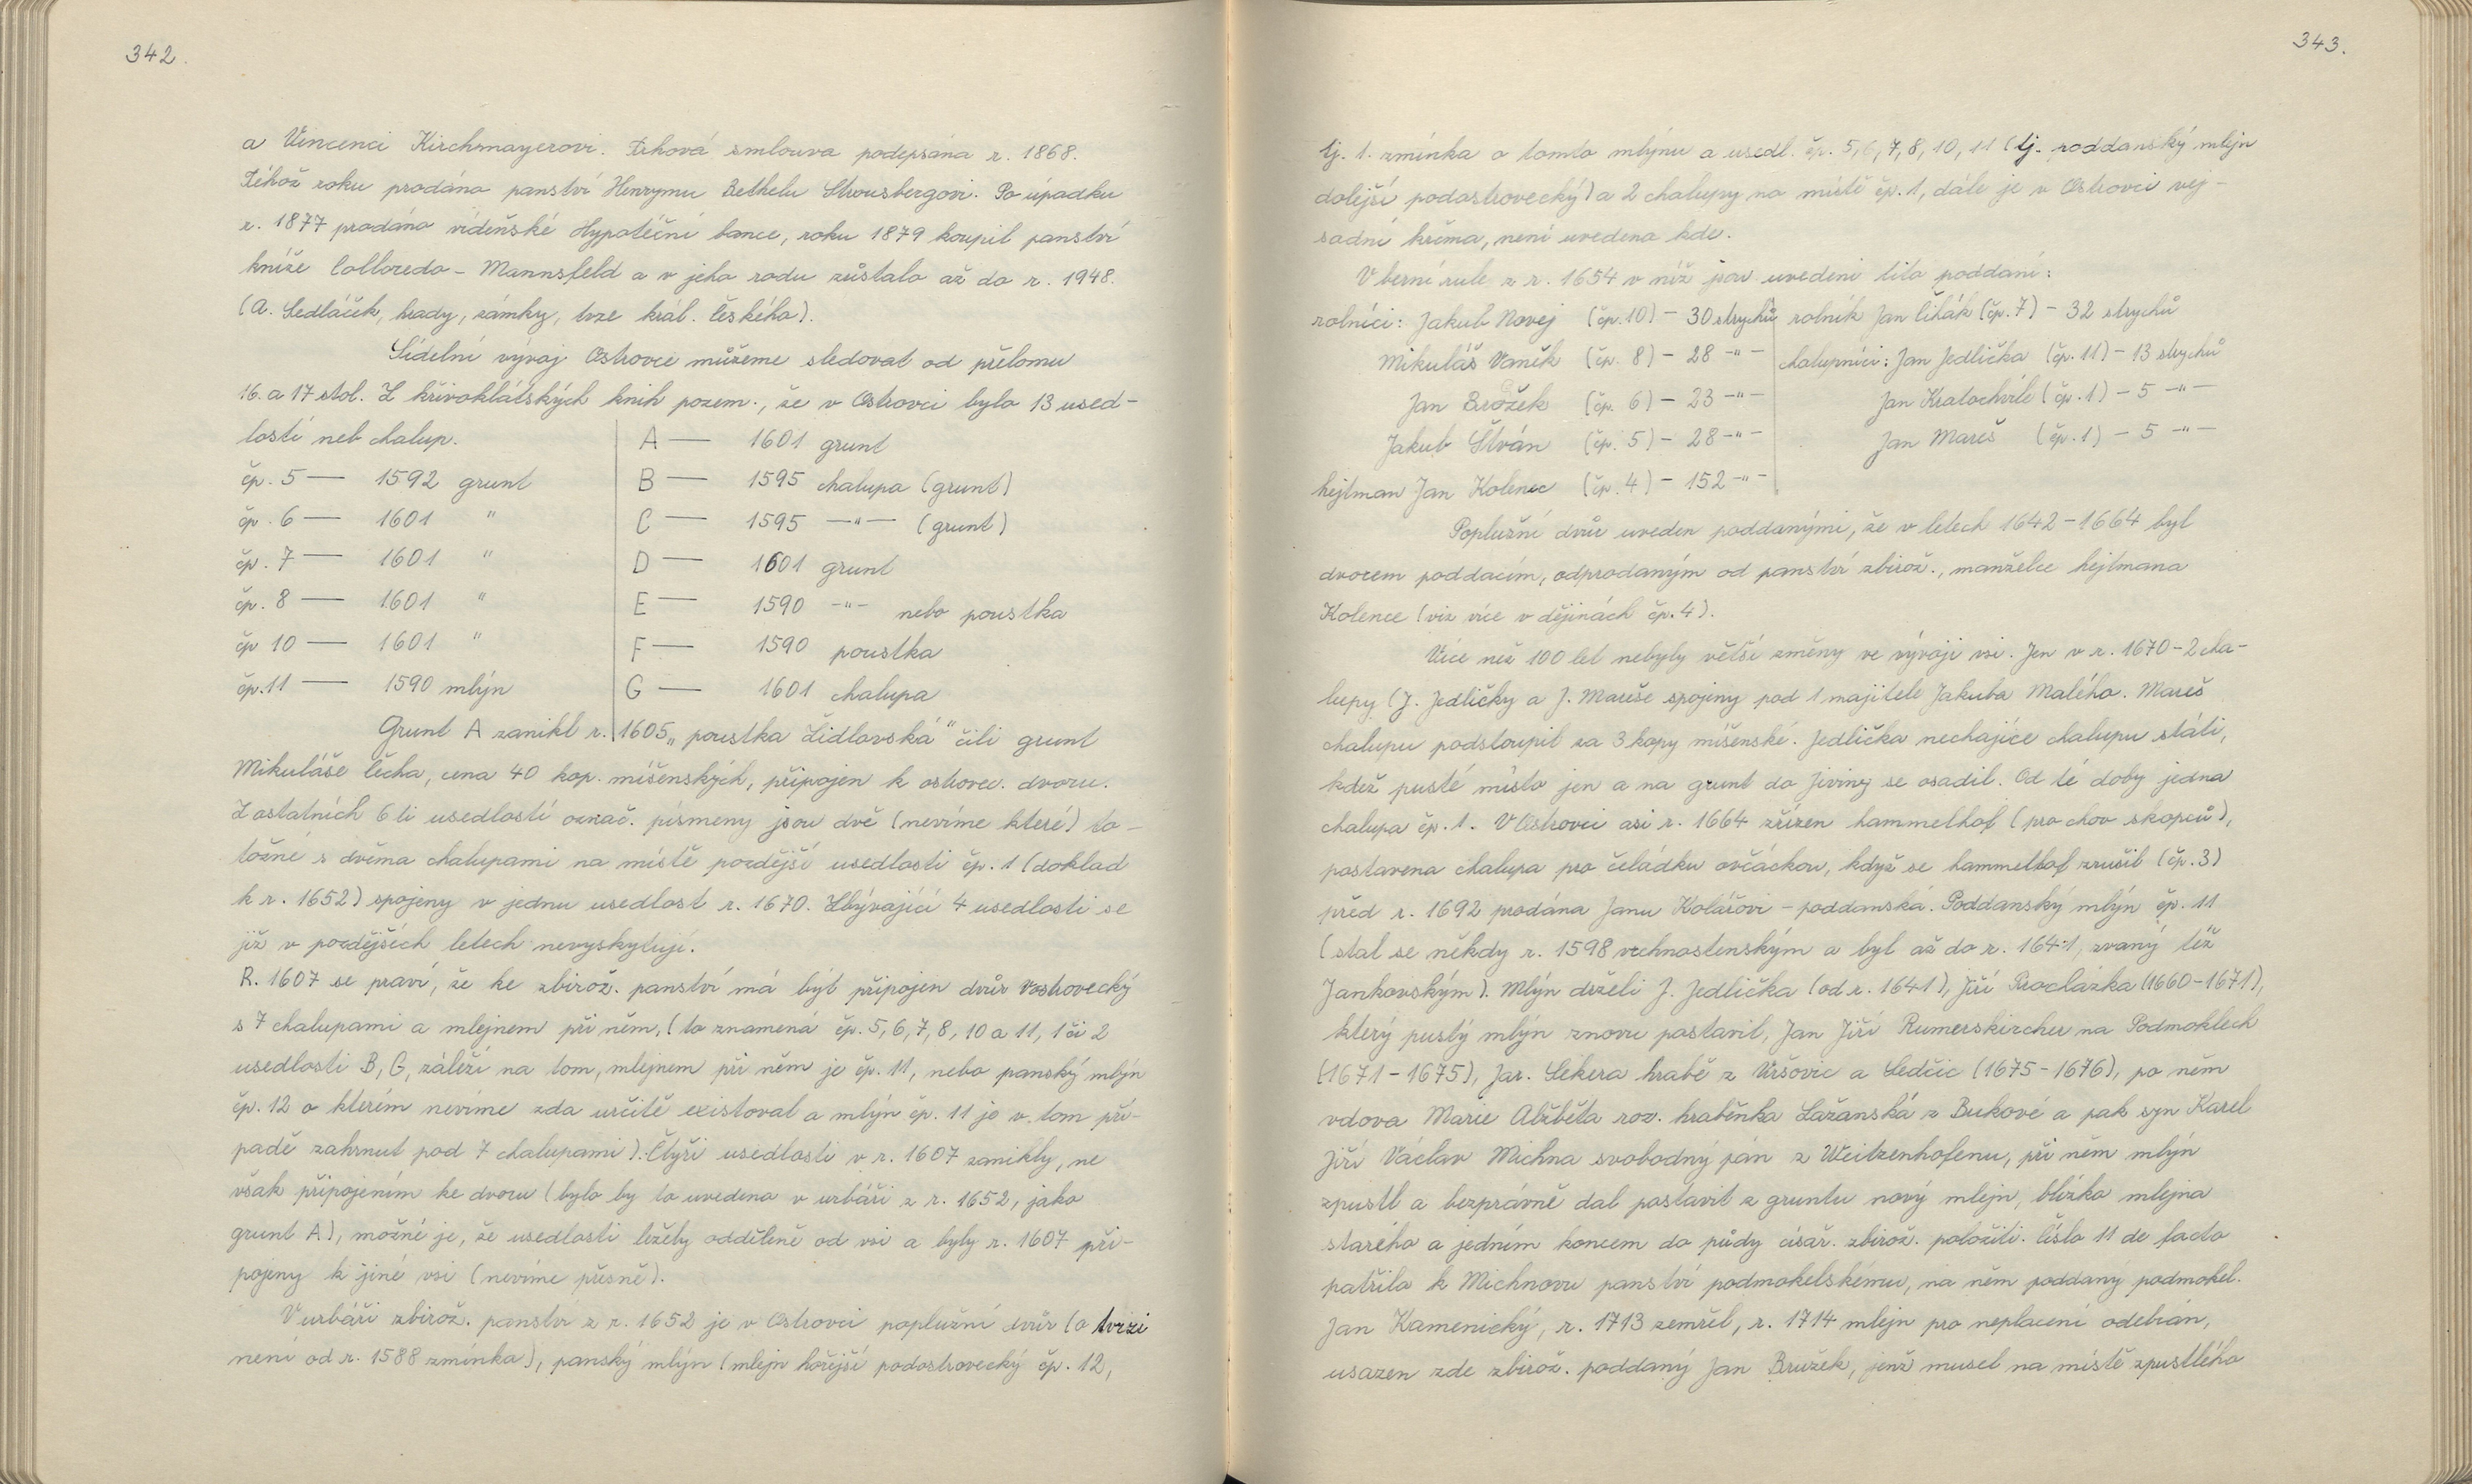 342.
a Vincenci Kirchmayerovi. Trhová smlouva podepsána r. 1868.
Téhož roku prodáno panství Henrymu Bethelu Strousbergovi. Po úpadku
r. 1877 prodáno vídeňské Hypoteční bance, roku 1879 koupil panství
kníže Colloredo - Mannsfeld a v jeho rodu zůstalo až do r. 1948.
(A. Sedláček, hrady, zámky, tvrze král. českého).
Sídelní vývoj Ostrovce můžeme sledovat od přelomu
16. a 17 stol. Z křivoklátských knih pozem., že v Ostrovci bylo 13 used-
lostí neb chalup.
čp. 5 — 1592 grunt
čp. 6 — 1601 "
čp. 7 — 1601 "
čp. 8 — 1601 "
čp 10 — 1601 "
čp. 11 — 1590 mlýn
A — 1601 grunt
B — 1595 chalupa (grunt)
C — 1595 —"— (grunt)
D — 1601 grunt
E — 1590 -"- nebo poustka
F — 1590 poustka
G — 1601 chalupa
Grunt A zanikl r. 1605 „poustka Židlovská" čili grunt
Mikuláše Čecha, cena 40 kop. míšenských, připojen k ostrovec. dvoru.
Z ostatních 6 ti usedlostí označ. písmeny jsou dvě (nevíme které) to-
tožné s dvěma chalupami na místě pozdější usedlosti čp. 1 (doklad
k r. 1652) spojeny v jednu usedlost r. 1670. Zbývající 4 usedlosti se
již v pozdějších letech nevyskytují.
R. 1607 se praví, že ke zbirož. panství má být připojen dvůr Vostrovecký
s 7 chalupami a mlejnem při něm, (to znamená čp. 5, 6, 7, 8, 10 a 11, 1 či 2
usedlosti B, G, záleží na tom, mlejnem při něm je čp. 11, nebo panský mlýn
čp. 12 o kterém nevíme zda určitě existoval a mlýn čp. 11 je v tom pří-
padě zahrnut pod 7 chalupami). Čtyři usedlosti v r. 1607 zanikly, ne
však připojením ke dvoru (bylo by to uvedeno v urbáři z r. 1652, jako
grunt A), možné je, že usedlosti ležely odděleně od vsi a byly r. 1607 při-
pojeny k jiné vsi (nevíme přesně).
V urbáři zbirož. panství z r. 1652 je v Ostrovci poplužní dvůr (o tvrzi
není od r. 1588 zmínka), panský mlýn (mlejn hořejší podostrovecký čp. 12,
343.
tj. 1. zmínka o tomto mlýnu a usedl. čp. 5, 6, 7, 8, 10, 11 (tj. poddanský mlýn
dolejší podostrovecký) a 2 chalupy na místě čp. 1, dále je v Ostrovci vej-
sadní krčma, není uvedeno kde.
V berní rule z r. 1654 v níž jsou uvedeni tito poddaní:
rolníci: Jakub Novej (čp. 10) - 30 strychů
Mikuláš Vaněk (čp. 8) - 28 -"-
Jan Brožek (čp. 6) - 23 -"-
Jakub Štván (čp. 5) - 28 -"-
hejtman Jan Kolenec (čp. 4) - 152 -"-
rolník Jan Čihák (čp. 7) - 32 strychů
chalupníci: Jan Jedlička (čp. 11) - 13 strychů
Jan Kratochvíle (čp. 1) - 5 -"-
Jan Mareš (čp. 1) - 5 -"-
Poplužní dvůr uveden poddanými, že v letech 1642 - 1664 byl
dvorem poddacím, odprodaným od panství zbirož., manželce hejtmana
Kolence (viz více v dějinách čp. 4).
Více než 100 let nebyly větší změny ve vývoji vsi. Jen v r. 1670 - 2 cha-
lupy (J. Jedličky a J. Mareše spojeny pod 1 majitele Jakuba Malého. Mareš
chalupu podstoupil za 3 kopy míšenské. Jedlička nechajíce chalupu státi,
kdež pusté místo jen a na grunt do Jiviny se osadil. Od té doby jedna
chalupa čp. 1. V Ostrovci asi r. 1664 zřízen hammelhof (pro chov skopců),
postavena chalupa pro čeládku ovčáckou, když se hammelhof zrušil (čp. 3)
před r. 1692 prodána Janu Kolářovi - poddanská. Poddanský mlýn čp. 11
(stal se někdy r. 1598 vrchnostenským a byl až do r. 1641, zvaný též
Jankovským). Mlýn drželi J. Jedlička (od r. 1641), Jiří Procházka (1660 - 1671),
který pustý mlýn znovu postavil, Jan Jiří Rumerskircher na Podmoklech
(1671 - 1675), Jar. Sekera hrabě z Vršovic a Sedčic (1675 - 1676), po něm
vdova Marie Alžběta roz. hraběnka Lažanská z Bukové a pak syn Karel
Jiří Václav Michna svobodný pán z Weitzenhofenu, při něm mlýn
zpustl a bezprávně dal postavit z gruntu nový mlejn, blízko mlejna
starého a jedním koncem do půdy císař. zbirož. položiti. Číslo 11 de facto
patřilo k Michnovu panství podmokelskému, na něm poddaný podmokel.
Jan Kamenický, r. 1713 zemřel, r. 1714 mlejn pro neplacení odebrán,
usazen zde zbirož. poddaný Jan Bružek, jenž musel na místě zpustlého